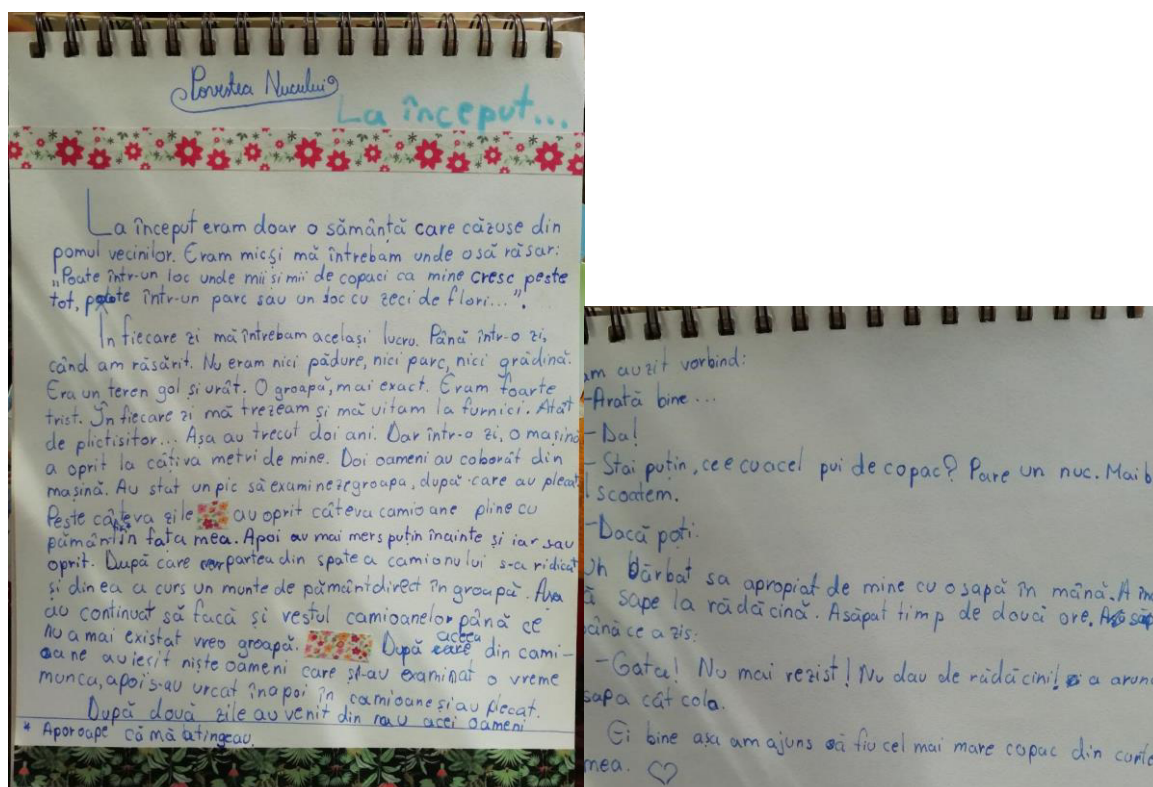 Povestea Nucului
La început...
La început eram doar o sămânță care căzuse din
pomul vecinilor. Eram mic și mă întrebam unde o să răsar:
„Poate într-un loc unde mii și mii de copaci ca mine cresc peste
tot, poate într-un parc sau un loc cu zeci de flori...".
În fiecare zi mă întrebam același lucru. Până într-o zi,
când am răsărit. Nu eram nici pădure, nici parc, nici grădină.
Era un teren gol și urât. O groapă, mai exact. Eram foarte
trist. În fiecare zi mă trezeam și mă uitam la furnici. Atât
de plictisitor... Așa au trecut doi ani. Dar într-o zi, o mașină
a oprit la câtiva metri de mine. Doi oameni au coborât din
mașină. Au stat un pic să examineze groapa, după care au plecat.
Peste câteva zile au oprit câteva camioane pline cu
pământ în fața mea. Apoi au mai mers puțin înainte și iar sau
oprit. După care partea din spate a camionului s-a ridicat
și din ea a curs un munte de pământ direct în groapă. Așa
au continuat să facă și restul camioanelor până ce
nu a mai existat vreo groapă. După aceea din cami-
oane au iesit niște oameni care și-au examinat o vreme
munca, apoi s-au urcat înapoi în camioane și au plecat.
După două zile au venit din nou acei oameni
* Aporoape că mă atingeau.
am auzit vorbind:
-Arată bine...
-Da!
-Stai puțin, ce e cu acel pui de copac? Pare un nuc. Mai b
l scoatem.
-Dacă poți.
Un bărbat sa apropiat de mine cu o sapă în mână. A înc
ă sape la rădăcină. A săpat timp de două ore. A săp
până ce a zis:
-Gata! Nu mai rezist! Nu dau de rădăcini! a arun
sapa cât colo.
Ei bine așa am ajuns să fiu cel mai mare copac din curte
mea.